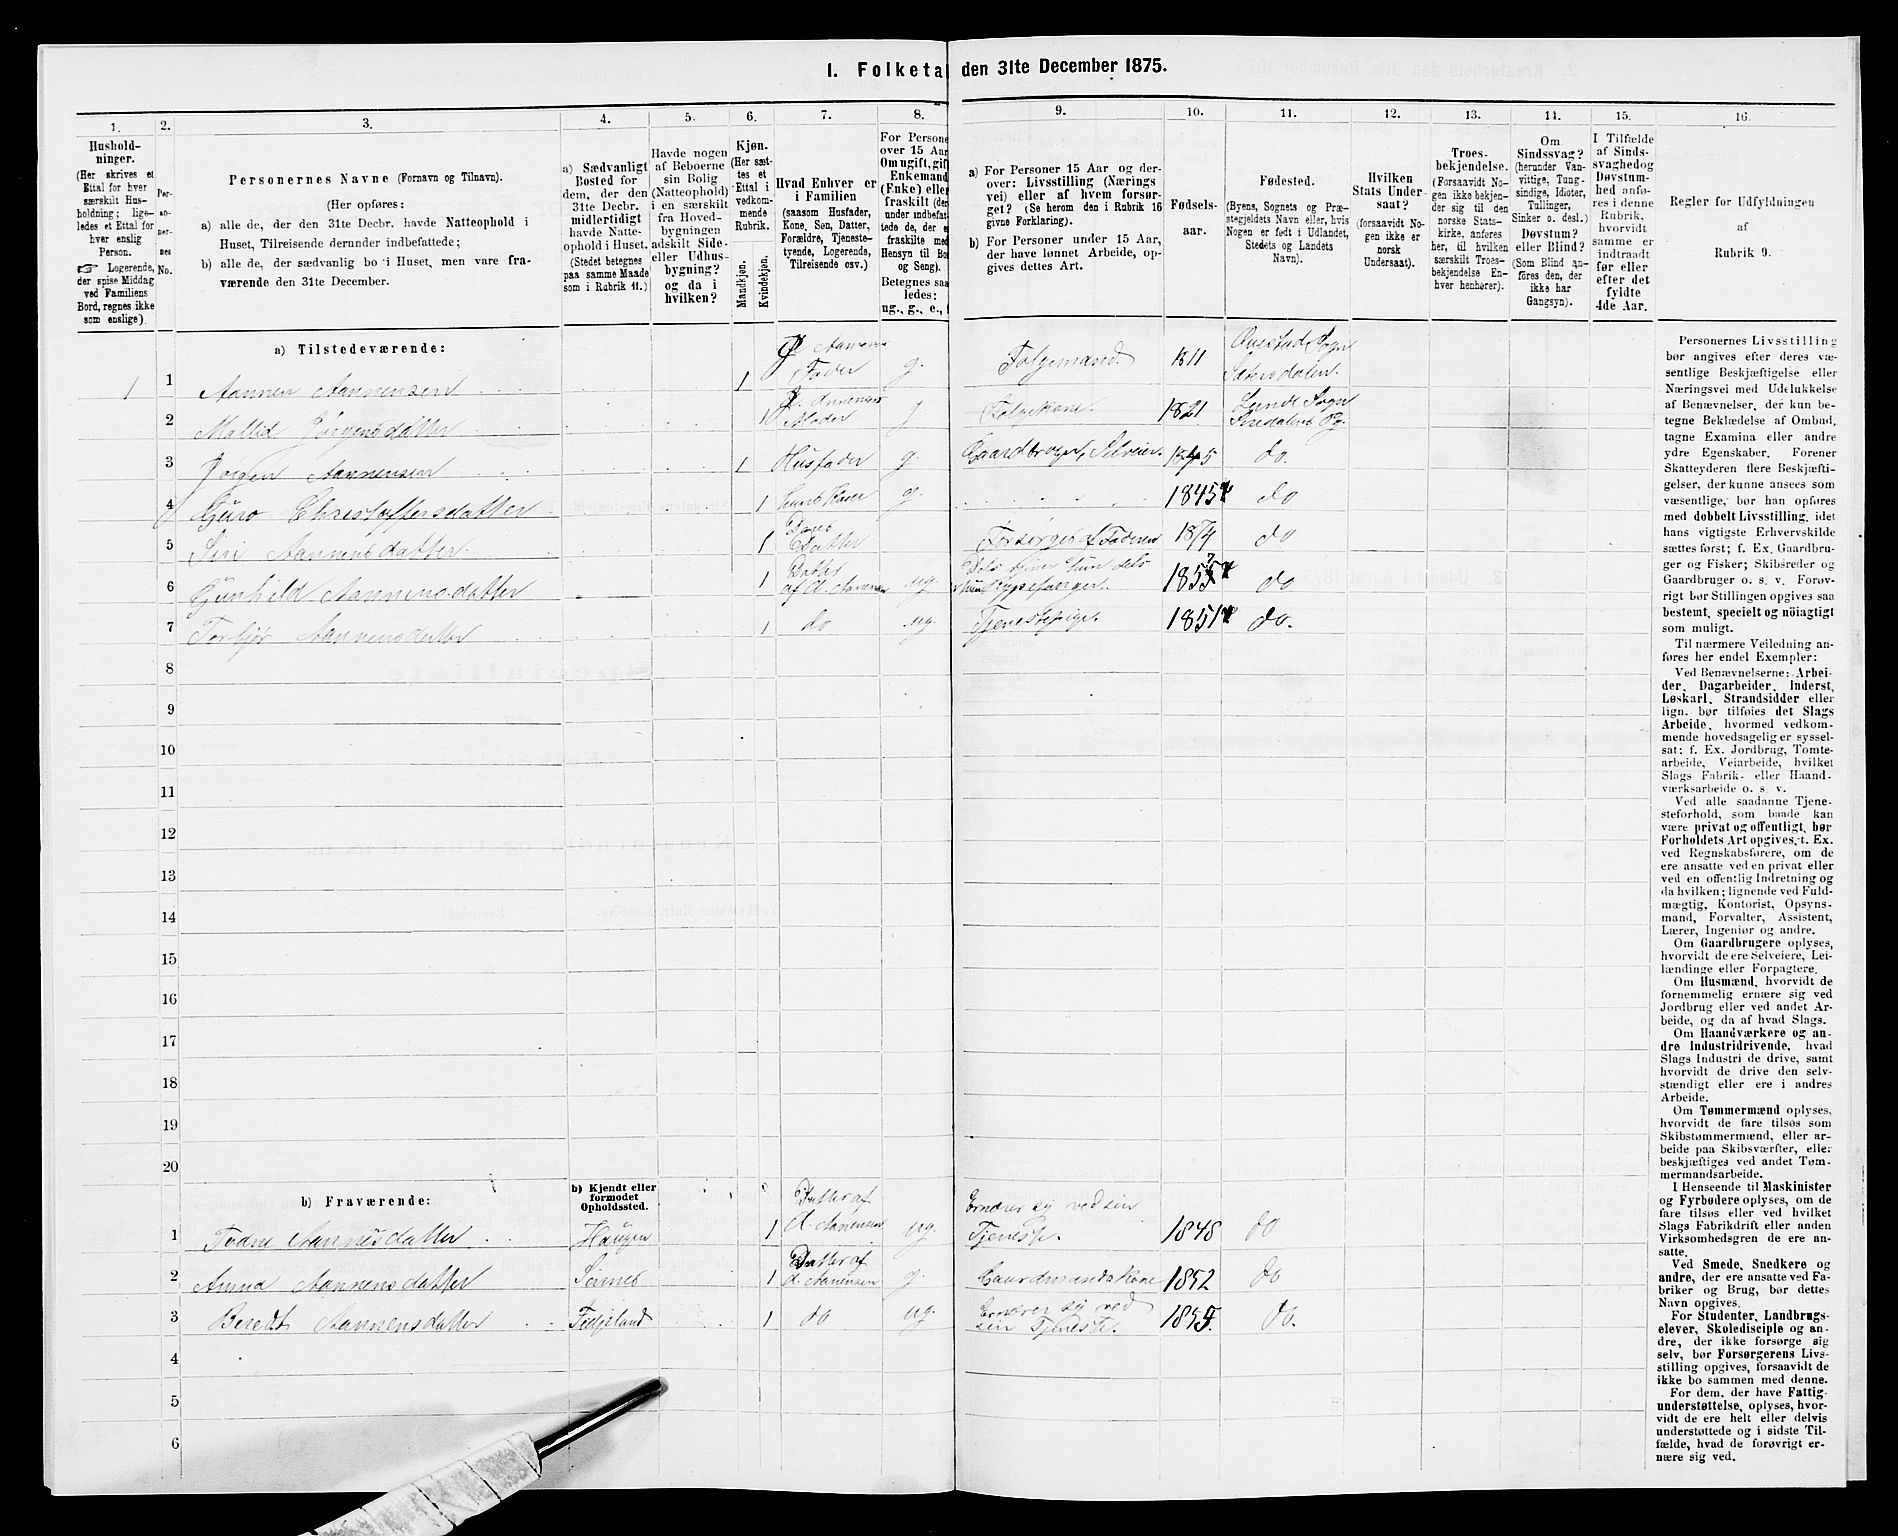 I. Folketa den 31te December 1875.
1.
Hushold-
ninger.
(Her skrives et
Ettal for hver
særskilt Hus-
holdning; lige-
ledes et Ettal for
hver enslig
Person.
☞ Logerende,
der spise Middag
ved Familiens
Bord, regnes ikke
som enslige).
2.
Per-
so-
ner-
nes
No.
3.
Personernes Navne (Fornavn og Tilnavn).
(Her opføres:
a) alle de, der den 31te Decbr. havde Natteophold i
Huset, Tilreisende derunder indbefattede;
b) alle de, der sædvanlig bo i Huset, men vare fra-
værende den 31te December.
4.
a) Sædvanligt
Bosted for
dem, der den
31te Decbr.
midlertidigt
havde Natte-
ophold i Huset.
(Stedet betegnes
paa samme Maade
som i Rubrik 11.)
5.
Havde nogen
af Beboerne
sin Bolig
(Natteophold)
i en særskilt
fra Hoved-
bygningen
adskilt Side-
eller Udhus-
bygning?
og da i
hvilken?
6.
Kjøn.
(Her sæt-
tes et
Ettal i
vedkom-
mende
Rubrik.
Mandkjøn.
Kvindekjøn.
7.
Hvad Enhver er
i Familien
(saasom Husfader,
Kone, Søn, Datter,
Forældre, Tjeneste-
tyende, Logerende,
Tilreisende osv.)
8.
For Persone
over 15 Aar
Om ugift, gif
Enkemand
(Enke) elle
fraskilt (der
under indbefat
tede de, der e
fraskilte med
Hensyn til Bo
og Seng).
Betegnes saa
ledes:
ug., g., e.,
9.
a) For Personer 15 Aar og der-
over: Livsstilling (Nærings
vei) eller af hvem forsør-
get? (Se herom den i Rubrik 16
givne Forklaring).
b) For Personer under 15 Aar,
der have lønnet Arbeide, op-
gives dettes Art.
10.
Fødsels-
aar.
11.
Fødested.
(Byens, Sognets og Præ-
stegjeldets Navn eller, hvis
Nogen er født i Udlandet,
Stedets og Landets
Navn).
12.
Hvilken
Stats Under-
saat?
(forsaavidt No-
gen ikke er
norsk
Undersaat).
13.
Troes-
bekjendelse.
(Forsaavidt No-
gen ikke bekjen-
der sig til den
norske Stats-
kirke, anføres
her, til hvilken
særskilt Troes-
bekjendelse En-
hver henhører).
14.
Om
Sindssvag?
(herunder Van-
vittige, Tung-
sindige, Idioter,
Tullinger,
Sinker o. desl.)
Døvstum?
eller Blind?
(Som Blind an-
føres den, der
ikke har
Gangsyn).
15.
I Tilfælde
af Sinds-
svaghed og
Døvstum-
hed anfø-
res i denne
Rubrik,
hvorvidt
samme er
indtraadt
før eller
efter det
fyldte
4de Aar.
16.
Regler for Udfyldningen
af
Rubrik 9.
a) Tilstedeværende:
1 1 Aannen Aannensen 1 Aannens Fader g. Folgemand. 1811 Qvestad Sogn Sætersdalen.
2 Mallid Jørgensdatter 1 Moder g Folgekone. 1821 Lunde Sogn Siredalens Pg.
3 Jørgen Aannensen 1 Husfader g. Gaardbruger, Selveier. 1845 do.
4 Guro Christoffersdatter 1 hans Kone g. 1845 do
5 Siri Aannensdatter 1 Datter Forsørges af Faderen 1874 do
6 Gunhild Aannensdatter 1 Datter af A. Aannensen ug. 1853 do
7 Torbjør Aannensdatter 1 do ug. Tjenestepige. 1851 do.
8
9
10
11
12
13
14
15
16
17
18
19
20
b) Fraværende:
b) Kjendt eller
formodet
Opholdssted.
1 Todne Aannensdatter Haugen 1 Datter af A. Aannensen ug. Ernærer sig ved sin Tjeneste. 1848 do
2 Anna Aannensdatter Sirnes 1 Datter af A. Aannensen g. Gaardmandskone 1852 do
3 Beredt Aannensdatter Fidjeland 1 do ug. Ernærer sig ved sin Tjeneste. 1855. do.
4
5
6
Personernes Livsstilling
bør angives efter deres væ-
sentlige Beskjæftigelse eller
Næringsvei med Udelukkelse
af Benævnelser, der kun be-
tegne Beklædelse af Ombud,
tagne Examina eller andre
ydre Egenskaber. Forener
Skatteyderen flere Beskjæfti-
gelser, der kunne ansees som
væsentlige, bør han opføres
med dobbelt Livsstilling, idet
hans vigtigste Erhvervskilde
sættes først; f. Ex. Gaardbru-
ger og Fisker; Skibsreder og
Gaardbruger o. s. v. Forøv-
rigt bør Stillingen opgives saa
bestemt, specielt og nøiagtigt
som muligt.
Til nærmere Veiledning an-
føres her endel Exempler:
Ved Benævnelserne: Arbei-
der, Dagarbeider, Inderst,
Løskarl, Strandsidder eller
lign. bør tilføies det Slags
Arbeide, hvormed vedkom-
mende hovedsagelig er syssel-
sat; f. Ex. Jordbrug, Tomte-
arbeide, Veiarbeide, hvilket
Slags Fabrik- eller Haand-
værksarbeide o. s. v.
Ved alle saadanne Tjene-
steforhold, som baade kan
være privat og offentligt, bør
Forholdets Art opgives, t. Ex.
ved Regnskabsførere, om de
ere ansatte ved en privat eller
ved en offentlig Indretning og
da hvilken; lignende ved Fuld-
mægtig, Kontorist, Opsyns-
mand, Forvalter, Assistent,
Lærer, Ingeniør og andre.
Om Gaardbrugere oplyses,
hvorvidt de ere Selveiere, Lei-
lændinge eller Forpagtere.
Om Husmænd, hvorvidt de
fornemmelig ernære sig ved
Jordbrug eller ved andet Ar-
beide, og da af hvad Slags.
Om Haandværkere og an-
dre Industridrivende, hvad
Slags Industri de drive, samt
hvorvidt de drive den selv-
stændigt eller ere i andres
Arbeide.
Om Tømmermænd oplyses,
hvorvidt de fare tilsøs som
Skibstømmermænd, eller ar-
beide paa Skibsværfter, eller
beskjæftiges ved andet Tøm-
mermandsarbeide.
I Henseende til Maskinister
og Fyrbødere oplyses, om de
fare tilsøs eller ved hvilket
Slags Fabrikdrift eller anden
Virksomhedsgren de ere an-
satte.
Ved Smede, Snedkere og
andre, der ere ansatte ved Fa-
briker og Brug, bør dettes
Navn opgives.
For Studenter, Landbrugs-
elever, Skoledisciple og an-
dre, der ikke forsørge sig
selv, bør Forsørgerens Livs-
stilling opgives, forsaavidt de
ikke bo sammen med denne.
For dem, der have Fattig-
understøttelse, oplyses, hvor-
vidt de ere helt eller delvis
understøttede og i sidste Til-
fælde, hvad de forøvrigt er-
nære sig ved.